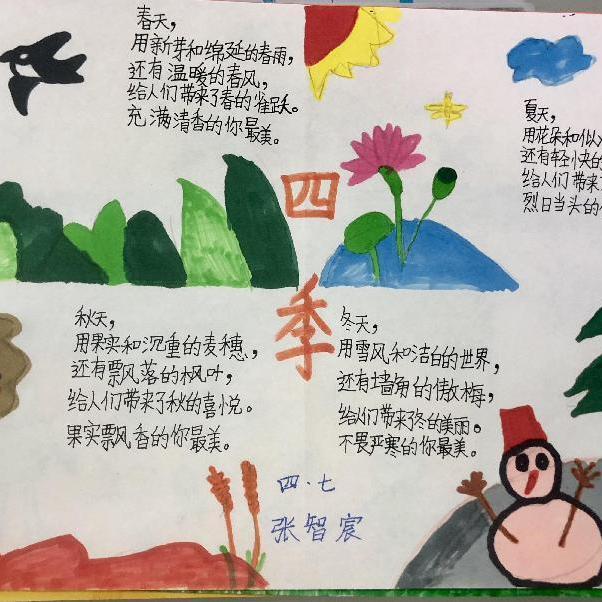 春天，
用新芽和绵延的春雨，
还有温暖的春风，
给人们带来了春的雀跃。
充满清香的你最美。
夏天，
用花朵和似火
还有轻快的
给人们带来了
烈日当头的
四
季
秋天，
用果实和沉重的麦穗，
还有飘落的枫叶，
给人们带来了秋的喜悦。
果实飘香的你最美。
冬天，
用雪风和洁白的世界，
还有墙角的傲梅，
给人们带来了冬的美丽。
不畏严寒的你最美。
四.七
张智宸